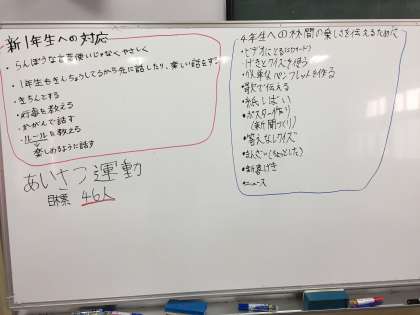 新1年生への対応
・らんぼうな言葉使いじゃなくやさしく
・1年生もきんちょうしてるから先に話したり、楽しい話をす。
・きちんとする
・行事を教える
・かがんで話す
・ルールを教える
楽しめるように話す
あいさつ運動
目標 46人
4年生への
しさを伝えるために
・げきとクイズを使う
・簡単なパンフレットを作る
・歌で伝える
・紙しばい
・ポスター作り
(新聞づくり)
・答えなしクイズ
・まんざい(ちょっとした)
・新喜げき
・ニュース